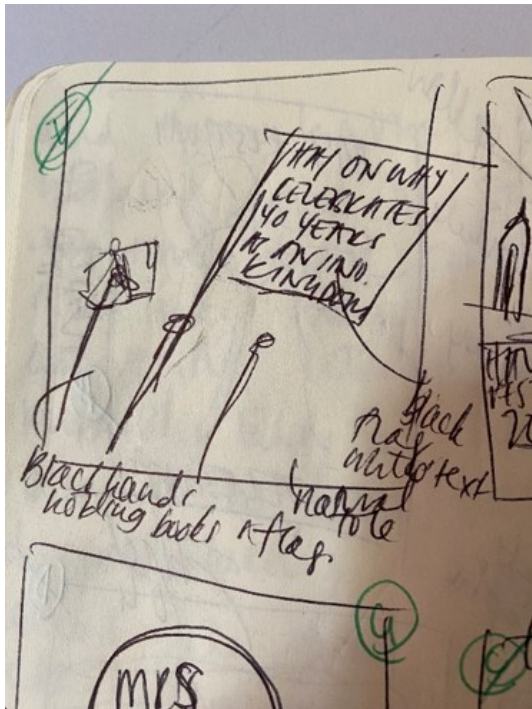 HAY ON WHY
CELEBRATES
40 YEARS
AS AN IND.
KINGDOM
Black
flag
white text
Black hands
holding books & flag
natural
mrs
4